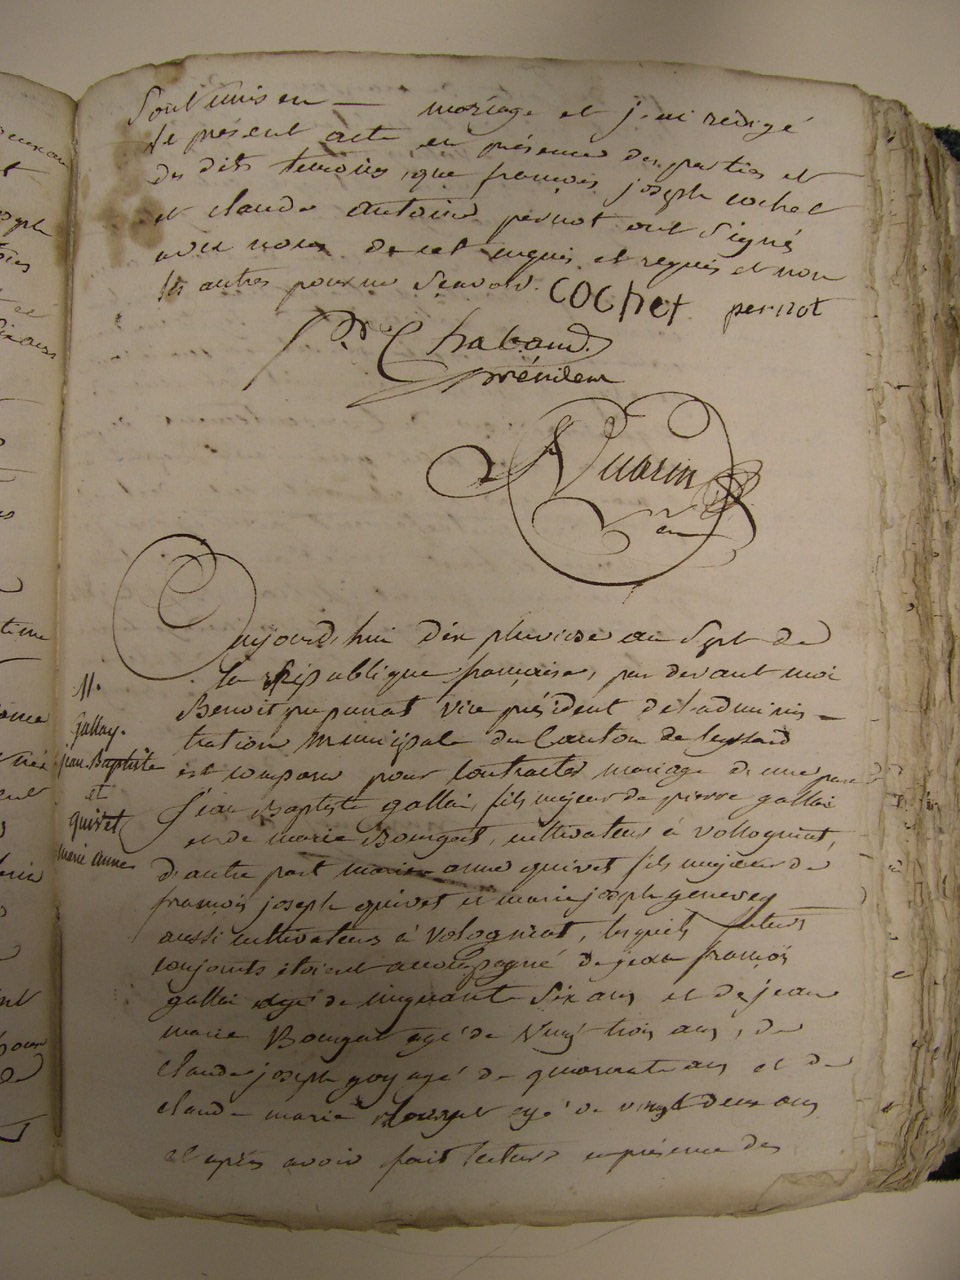 Sont unis en — mariage et j'ai redigé
le présent acte en présence des parties et
des dits temoins, que françois joseph cochet
et claude antoine pernot ont signé
avec nous de cet enquis et requis et non
les autres pour ne Scavoir. COCHET pernot
Chaband.
président
Vuarin
Aujourd'hui dix pluviose an Sept de
la République française, par devant moi
Benoit vice président de l'adminis-
tration municipale du Canton de
est comparu pour contracter mariage d'une part
Jean Baptiste gallai, fils majeur de pierre gallai
et de marie Bourgat, cultivateur à vollognat,
d'autre part marie anne quivet fils majeur de
françois joseph quivet et marie joseph genevey
aussi cultivateurs à vologniat, lesquels futurs
conjoints étoient accompagné de jean françois
gallai agé de cinquante Six ans et de jean
marie Bourgat agé de vingt trois ans, de
claude joseph goy agé de quarante ans et de
claude marie agé de vingt deux ans
et après avoir fait lecture en présence des
11.
Gallay.
jean-Baptiste
et
quivet
marie anne